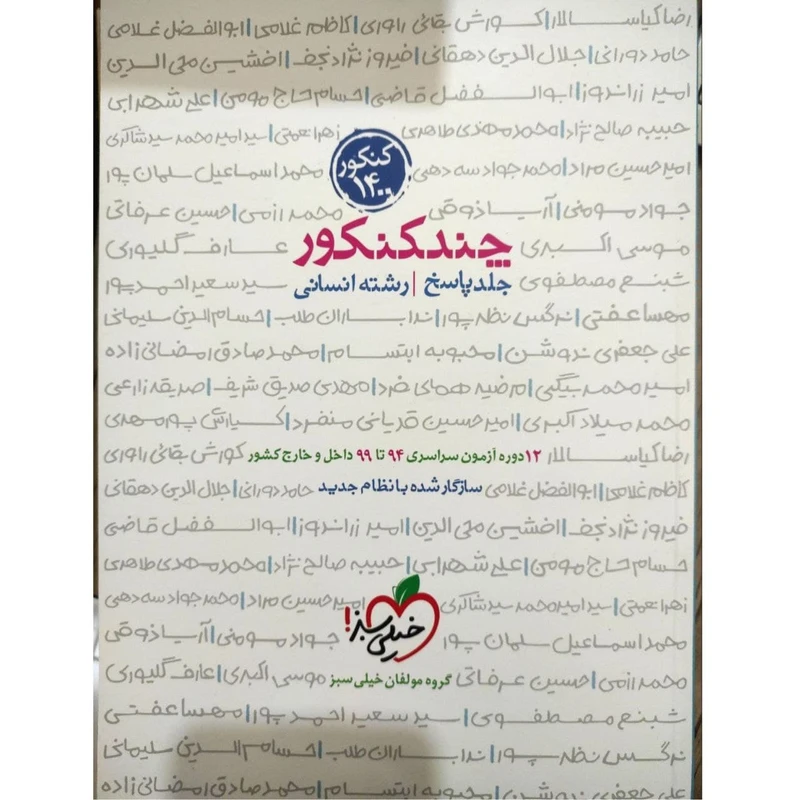 رضا کیاسالار|کورش بقائی راوری|کاظم غلامی|ابوالفضل غلامی
حامد دورانی|جلال الدین دهقانی|فیروز نژادنجف|افشین محی الدین
امیر زراندوز|ابوالفضل قاضی|حسام حاج مومن|علی شهرابی
حبیبه صالح نژاد|محمدمهدی طاهری|زهرا نعمتی|سیدامیرمحمد سیدشاکری
کنکور
۱۴۰۰
امیرحسین مراد|محمدجواد سه دهی|محمداسماعیل سلمان پور
جواد مومنی|آریا ذوقی|محمد رزمی|حسین عرفاتی
موسی اکبری|عارف گلپوری
چند کنکور
شبنم مصطفوی|سید سعید احمدپور
جلد پاسخ | رشته انسانی
مهسا عفتی|نرگس نظرپور|ندا باران طلب|حسام الدین سلیمانی
علی جعفری ندوشن|محبوبه ابتسام|محمدصادق رمضانی زاده
امیرمحمد بیگی|مرضیه همای فرد|مهدی صدیق شریف|صدیقه زارعی
محمدمیلاد اکبری|امیرحسین قدیانی منفرد|کیارش پورمهدی
رضا کیاسالار ۱۲ دوره آزمون سراسری ۹۴ تا ۹۹ داخل و خارج کشور کورش بقائی راوری
کاظم غلامی|ابوالفضل غلامی سازگار شده با نظام جدید حامد دورانی|جلال الدین دهقانی
فیروز نژادنجف|افشین محی الدین|امیر زراندوز|ابوالفضل قاضی
حسام حاج مومن|علی شهرابی|حبیبه صالح نژاد|محمدمهدی طاهری
زهرا نعمتی|سیدامیرمحمد سیدشاکری|امیرحسین مراد|محمدجواد سه دهی
خیلی سبز!
محمداسماعیل سلمان پور|جواد مومنی|آریا ذوقی
محمد رزمی|حسین عرفاتی گروه مولفان خیلی سبز موسی اکبری|عارف گلپوری
شبنم مصطفوی|سید سعید احمدپور|مهسا عفتی
نرگس نظرپور|ندا باران طلب|حسام الدین سلیمانی
علی جعفری ندوشن|محبوبه ابتسام|محمدصادق رمضانی زاده